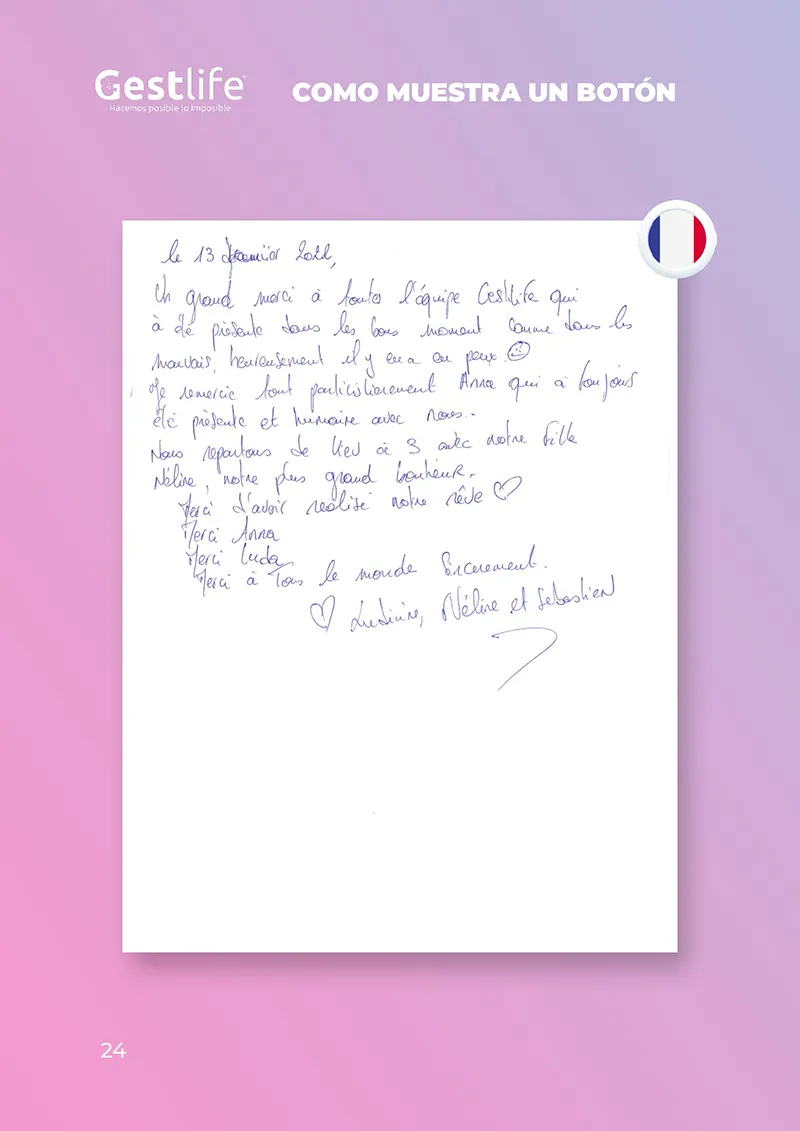 Gestlife
Hacemos posible lo imposible
COMO MUESTRA UN BOTÓN
le 13
Un grand merci à toutes l'équipe Gestlife qui
à été présente dans les bons moment comme dans les
mauvais, heureusement il y en a eu peux.
Je remercie tout particulièrement Anna qui à toujours
été présente et humaine avec nous..
Nous repartons de Kiev à 3 avec notre fille
Néline, notre plus grand bonheur.
Merci d'avoir realisé notre rêve
Merci Anna
Merci Luda
Merci à Tous le monde
Ludivine, Néline et Sebastien
24